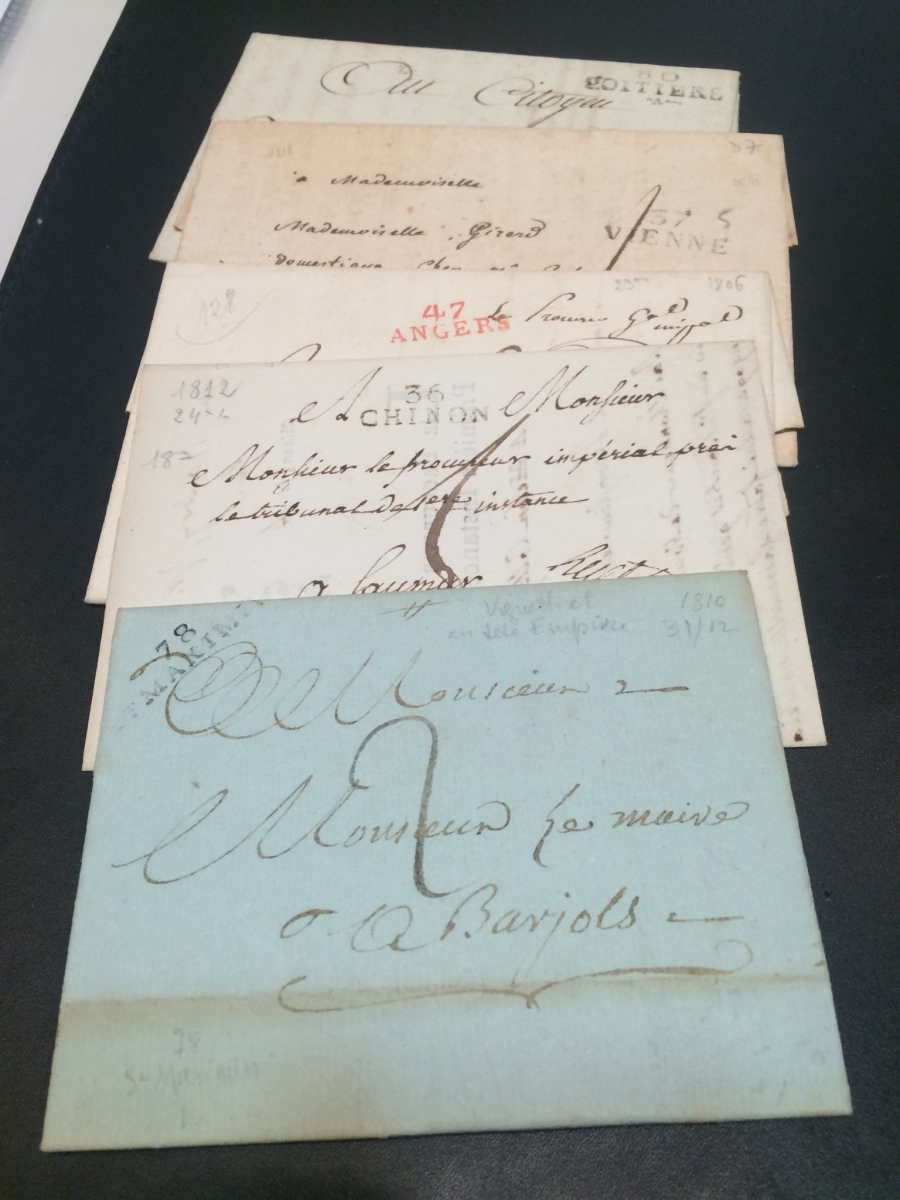 Au Citoyen
80
POITIERS
37
à Mademoiselle
Mademoiselle Girerd
domestique
37 5
VIENNE
128
1806
47
ANGERS
Le
1812
24
18
36
CHINON
A Monsieur
Monsieur le procureur impérial près
le tribunal de 1ere instance
a Saumur
1810
31/12
en tete Empire
78
MAXIMIN
A Monsieur
2
Monsieur Le maire
A Barjols
78
St Maximin